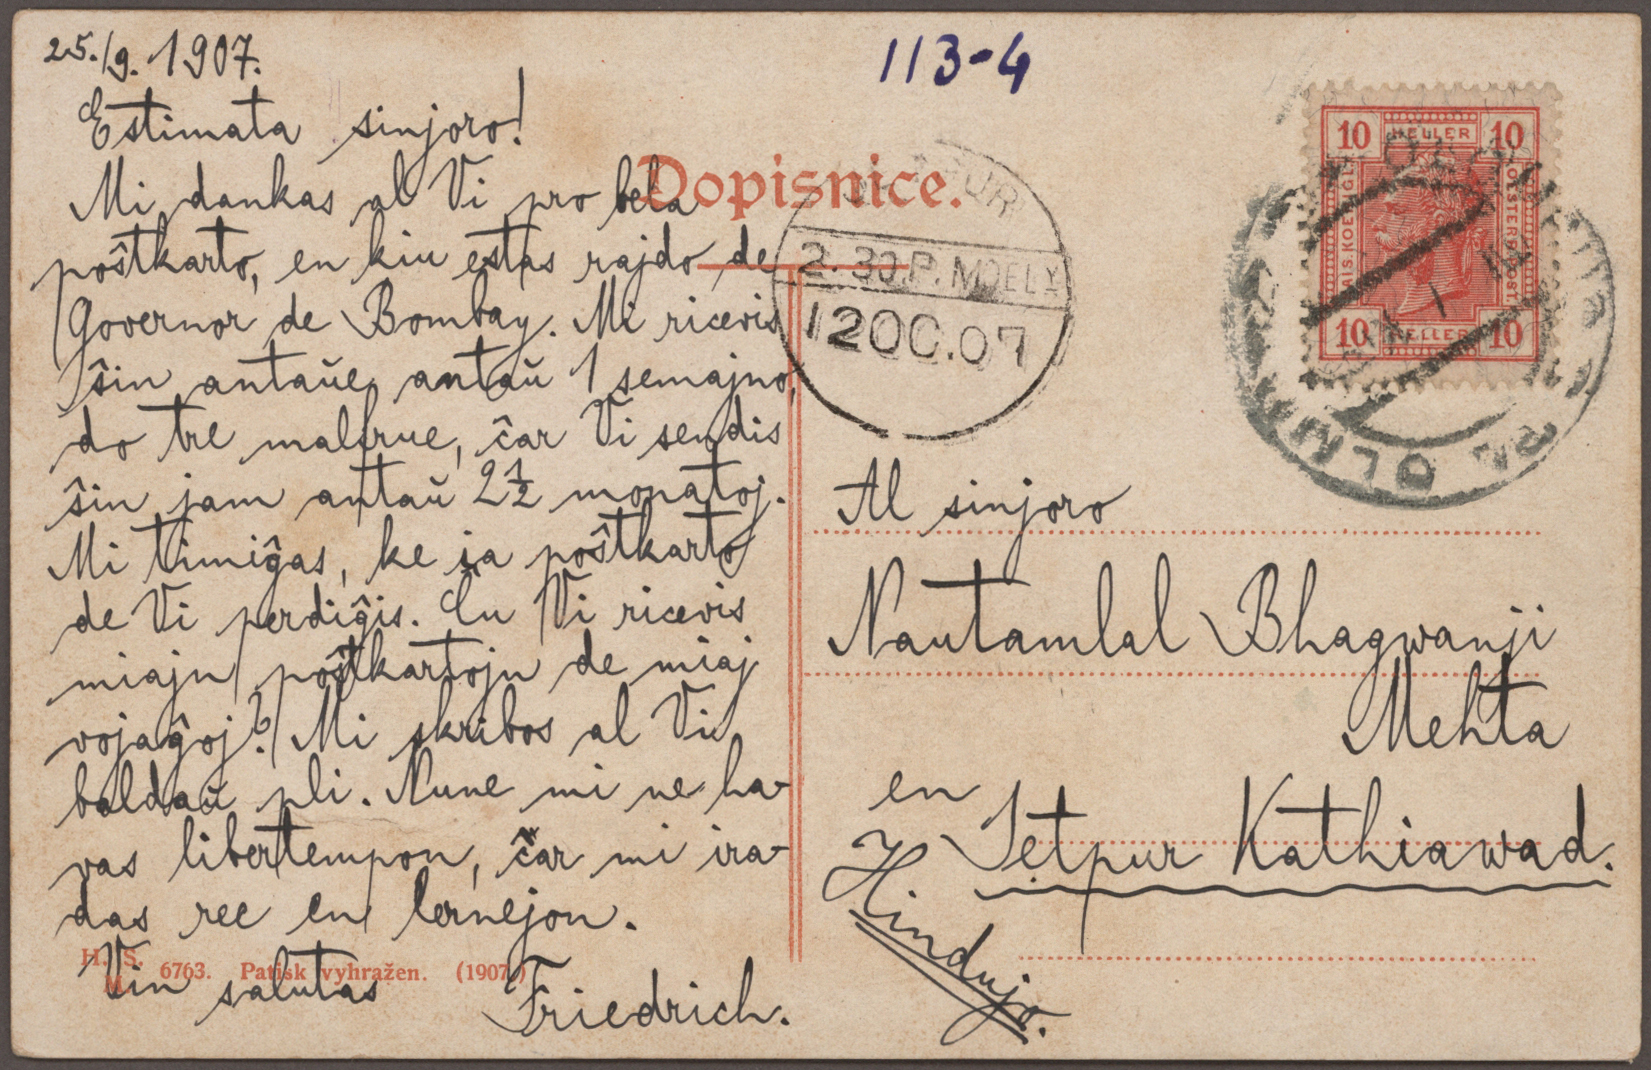 25./9. 1907.
Estimata sinjoro!
Mi dankas al Vi pro bela
poŝtkarto, en kiu estas rajdo de
Governor de Bombay. Mi ricevis
ŝin antaŭe, antaŭ 1 semajno,
do tre malfrue, ĉar Vi sendis
ŝin jam antaŭ 2½ monatoj.
Mi timiĝas, ke ia poŝtkarto
de Vi perdiĝis. Ĉu Vi ricevis
miajn poŝtkartojn de miaj
vojaĝoj? Mi skribos al Vi
baldaŭ pli. Nune mi ne ha-
vas libertempon, ĉar mi ira-
das ree en lernejon.
Vin salutas Friedrich.
H. S. 6763. Patisk vyhražen. (1907.)
113-4
Dopisnice.
2.30.P.M DELY
12OC.07
10 HELLER 10
10 HELLER 10
OLMÜTZ
Al sinjoro
Nautamlal Bhagwanji
Mehta
en Jetpur Kathiawad.
Hindujo.